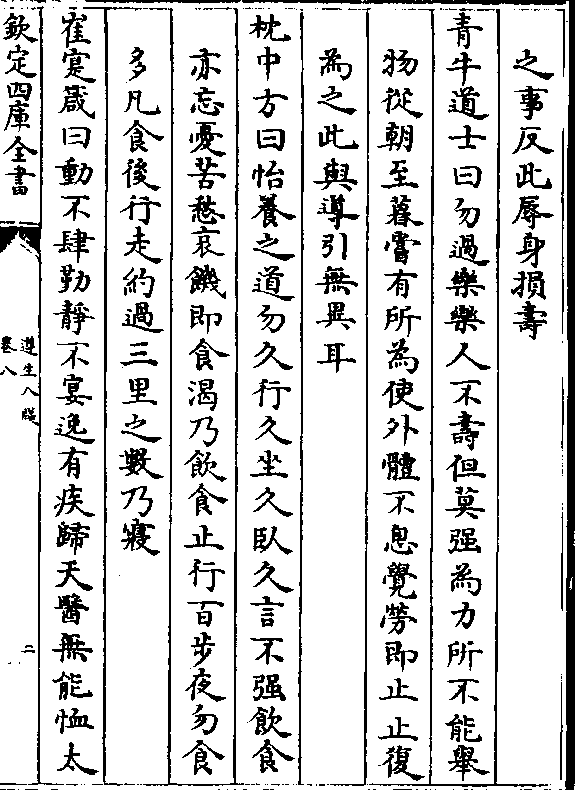 之事反此辱身損壽
青牛道士曰勿過樂樂人不壽但莫强為力所不能舉
物從朝至暮嘗有所為使外體不息覺勞即止止復
為之此與導引無異耳
枕中方曰怡養之道勿久行久坐久臥久言不强飲食
亦忘憂苦愁哀饑即食渴乃飲食止行百步夜勿食
多凡食後行走約過三里之數乃寢
崔寔箴曰動不肆勤靜不宴逸有疾歸天醫無能恤太
欽定四庫全書
遵生八牋
卷八
二